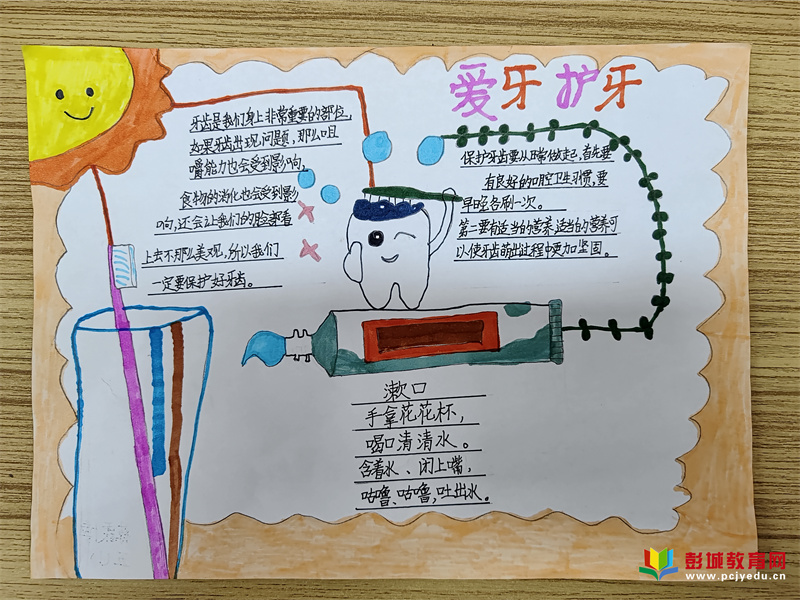 爱牙护牙
牙齿是我们身上非常重要的部位,
如果牙齿出现问题,那么咀
嚼能力也会受到影响,
食物的消化也会受到影
响,还会让我们的脸部看
上去不那么美观,所以我们
一定要保护好牙齿。
保护牙齿要从日常做起,首先要
有良好的口腔卫生习惯,要
早晚各刷一次。
第二要有适当的营养,适当的营养可
以使牙齿萌出过程中更加坚固。
漱口
手拿花花杯,
喝口清清水。
含着水、闭上嘴,
咕噜、咕噜,吐出水。
彭城教育网
www.pcjyedu.cn